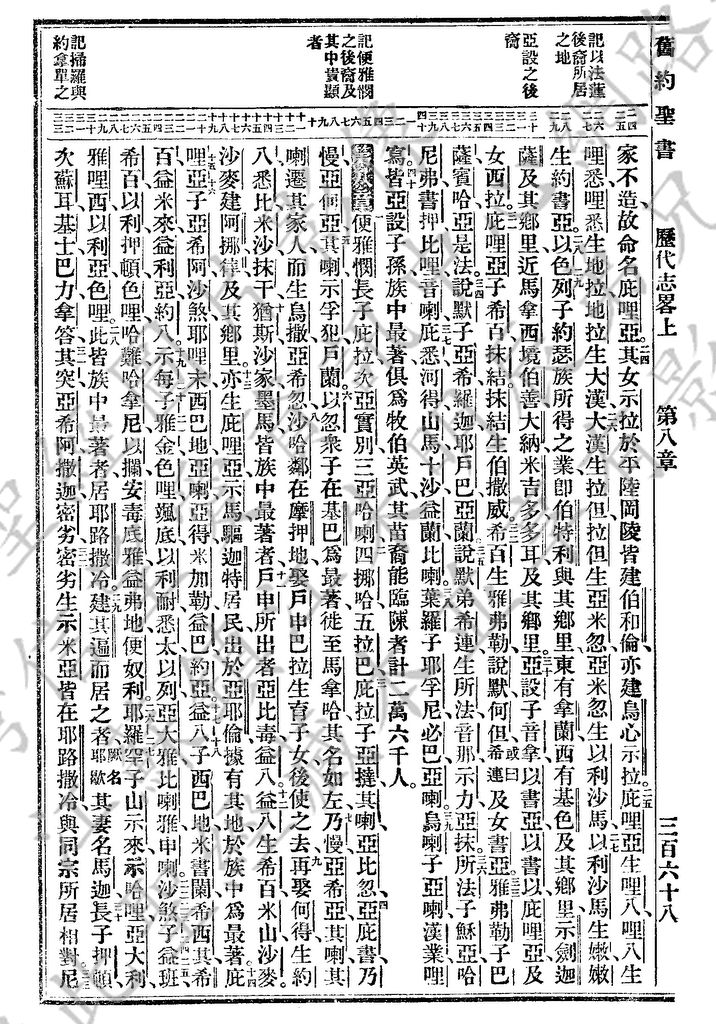 舊約聖書 歷代志畧上 第八章 三百六十八
記以法蓮
後裔所居
之地
亞設之後
裔
記便雅憫
之後裔及
其中貴顯
者
記掃羅與
約拿單之
家不造故命名庇哩亞其女示拉於平陸岡陵皆建伯和倫亦建烏心示拉庇哩亞生哩八哩八生
哩悉哩悉生地拉地拉生大漢大漢生拉但拉但生亞米忽亞米忽生以利沙馬以利沙馬生嫩嫩
生約書亞以色列子約瑟族所得之業卽伯特利與其鄉里東有拿蘭西有基色及其鄉里示劍迦
薩及其鄉里近馬拿西境伯善大納米吉多多耳及其鄉里亞設子音拿以書亞以書以庇哩亞及
女西拉庇哩亞子希百抹結抹結生伯撒威希百生雅弗勒說默何但或曰希連及女書亞雅弗勒子巴
薩賓哈亞是法說默子亞希羅迦耶戶巴亞蘭說默弟希連生所法音那示力亞抹所法子穌亞哈
尼弗書押比哩音喇庇悉河得山馬十沙益蘭比喇葉羅子耶孚尼必巴亞喇烏喇子亞喇漢業哩
寫皆亞設子孫族中最著俱爲牧伯英武其苗裔能臨陳者計二萬六千人
第八章便雅憫長子庇拉次亞實別三亞哈喇四挪哈五拉巴庇拉子亞撻其喇亞比忽亞庇書乃
慢亞何亞其喇示孚犯戶蘭以忽衆子在基巴爲最著徙至馬拿哈其名如左乃慢亞希亞其喇其
喇遷其家人而生烏撒亞希忽沙哈鄰在摩押地娶戶申巴拉生育子女後使之去再娶何得生約
八悉比米沙抹干猶斯沙家墨馬皆族中最著者戶申所出者亞比毒益八益八生希百米山沙麥
沙麥建阿挪得及其鄉里亦生庇哩亞示馬驅迦特居民出於亞耶倫據有其地於族中爲最著庇
哩亞子亞希阿沙煞耶哩末西巴地亞喇亞得米加勒益巴約亞益八子西巴地米書蘭希西其希
百益米來益利亞約八示每子雅金色哩颯底以利耐悉太以列亞大雅比喇雅申喇沙煞子益班
希百以利押頓色哩哈難哈拿尼以攔安毒底雅益弗地便奴利耶羅罕子山示來示哈哩亞大利
雅哩西以利亞色哩此皆族中最著者居耶路撒冷建其遍而居之者厥名耶歇其妻名馬迦長子押頓
次蘇耳基士巴力拿答其突亞希阿撒迦密劣密劣生示米亞皆在耶路撒冷與同宗所居相對尼